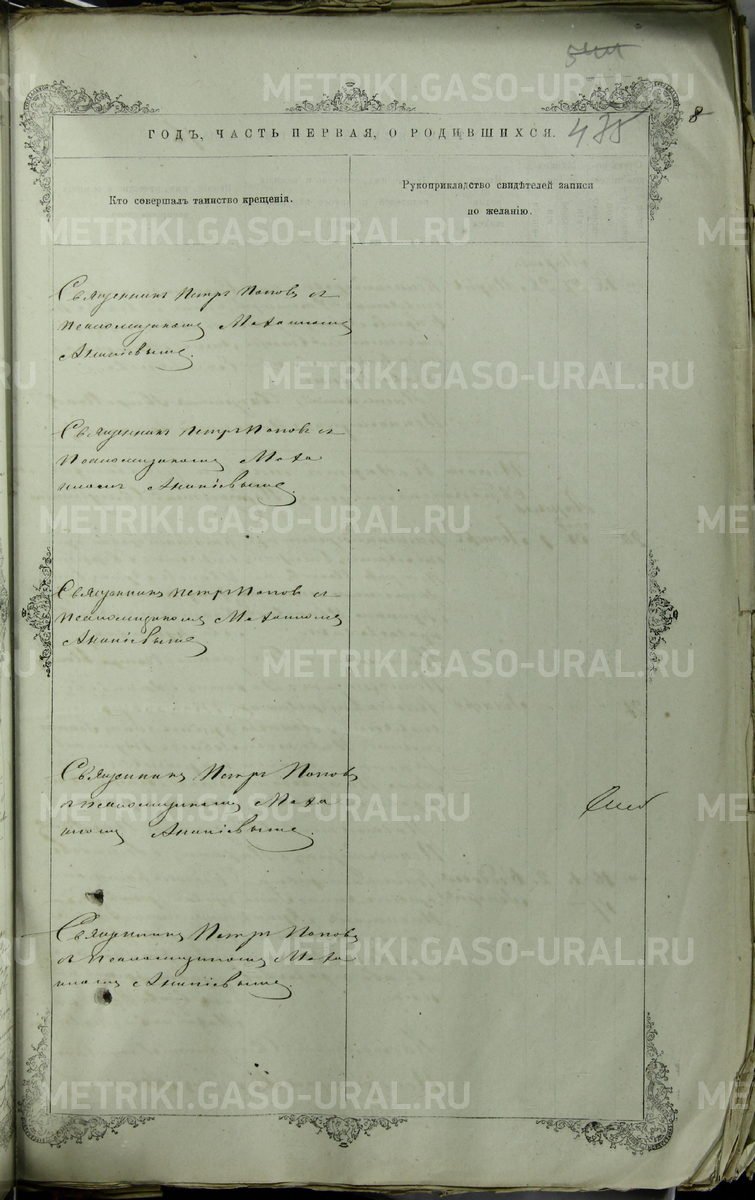 8
ГОДЪ, ЧАСТЬ ПЕРВАЯ, О РОДИВШИХСЯ. 475
Кто совершалъ таинство крещенія.
Рукоприкладство свидѣтелей записи
по желанію.
Священникъ Петръ Поповъ съ
псаломщикомъ Михаиломъ
Ананіевымъ.
Священникъ Петръ Поповъ съ
псаломщикомъ Миха
иломъ Ананіевымъ
Священникъ Петръ Поповъ съ
псаломщикомъ Михаиломъ
Ананіевымъ
Священникъ Петръ Поповъ
съ псаломщикомъ Миха
иломъ Ананіевымъ.
Священникъ Петръ Поповъ
съ псаломщикомъ Миха
иломъ Ананіевымъ.
METRIKI.GASO-URAL.RU